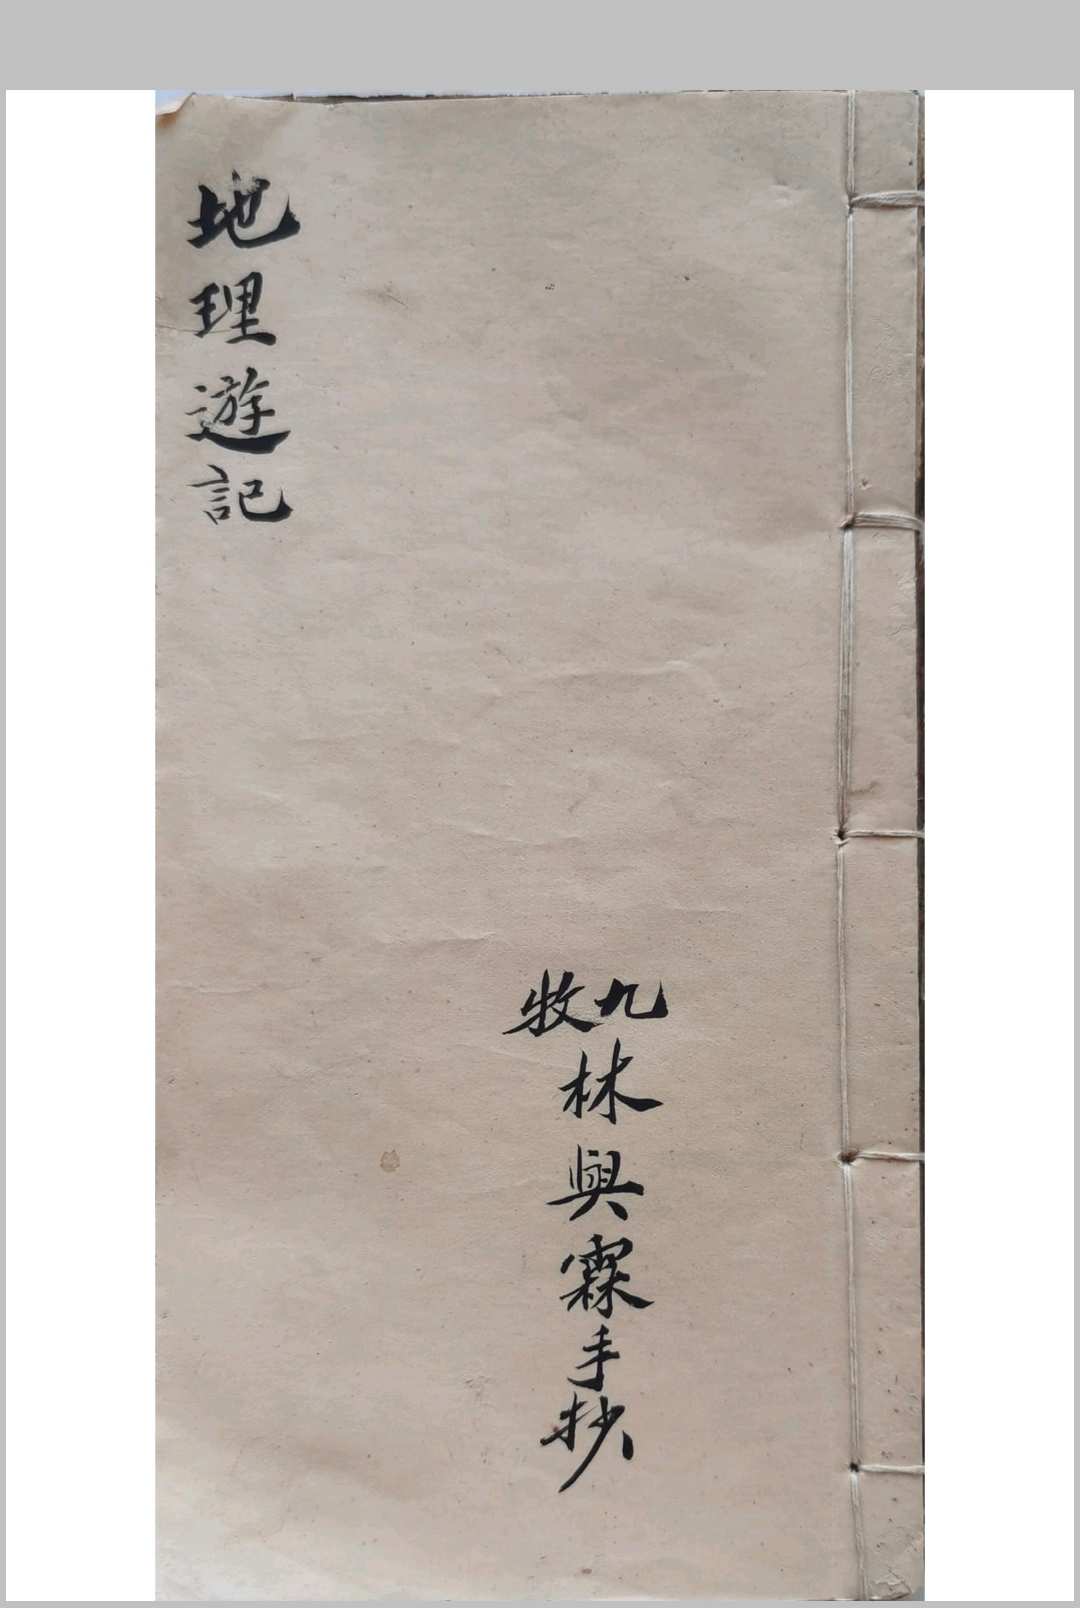 地理遊記
九牧林興霖手抄